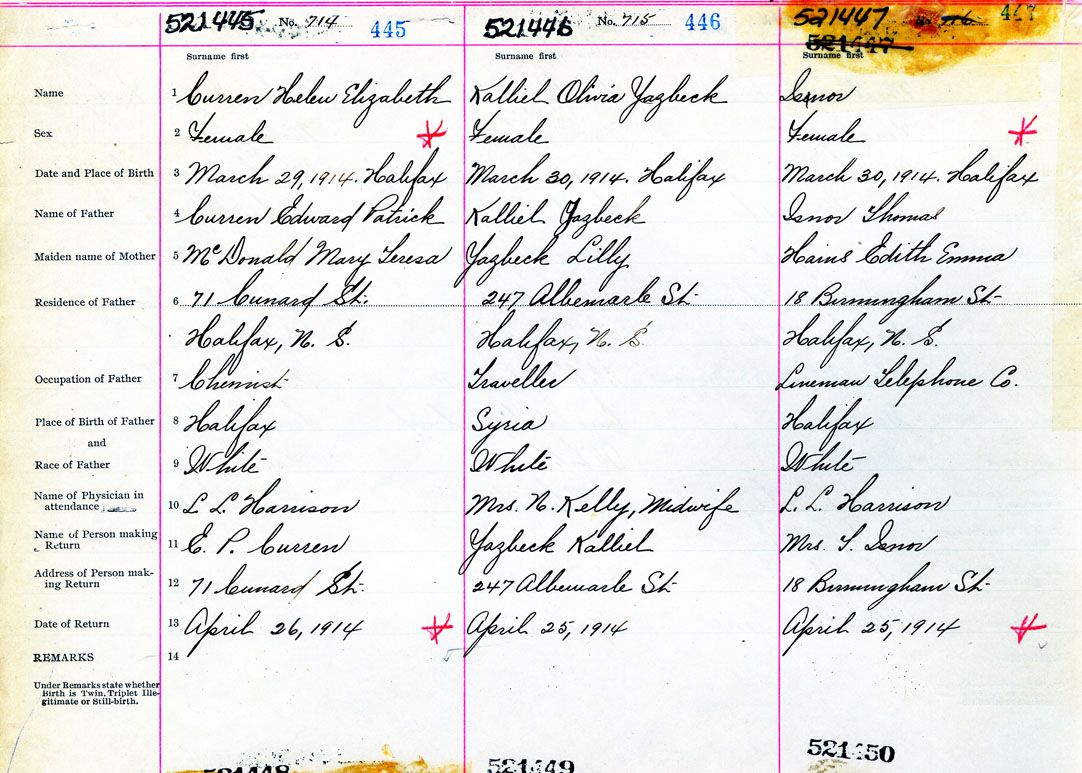 521445 No. 714 445 521446 No. 715 446 521447 No. 716 447
521447
Surname first Surname first Surname first
Name 1 Curren Helen Elizabeth Kalliel Olivia Yazbeck Isnor
Sex 2 Female Female Female
Date and Place of Birth 3 March 29, 1914. Halifax March 30, 1914. Halifax March 30, 1914. Halifax
Name of Father 4 Curren Edward Patrick Kalliel Yazbeck Isnor Thomas
Maiden name of Mother 5 McDonald Mary Teresa Yazbeck Lilly Hains Edith Emma
Residence of Father 6 71 Cunard St. 247 Albemarle St. 18 Birmingham St.
Halifax, N. S. Halifax, N. S. Halifax, N. S.
Occupation of Father 7 Chemist Traveller Lineman Telephone Co.
Place of Birth of Father 8 Halifax Syria Halifax
and
Race of Father 9 White White White
Name of Physician in
attendance 10 L. L. Harrison Mrs. N. Kelly, Midwife L. L. Harrison
Name of Person making
Return 11 E. P. Curren Yazbeck Kalliel Mrs. T. Isnor
Address of Person mak-
ing Return 12 71 Cunard St. 247 Albemarle St. 18 Birmingham St.
Date of Return 13 April 26, 1914 April 25, 1914 April 25, 1914
REMARKS 14
Under Remarks state whether
Birth is Twin, Triplet Ille-
gitimate or Still-birth.
521448 521449 521450